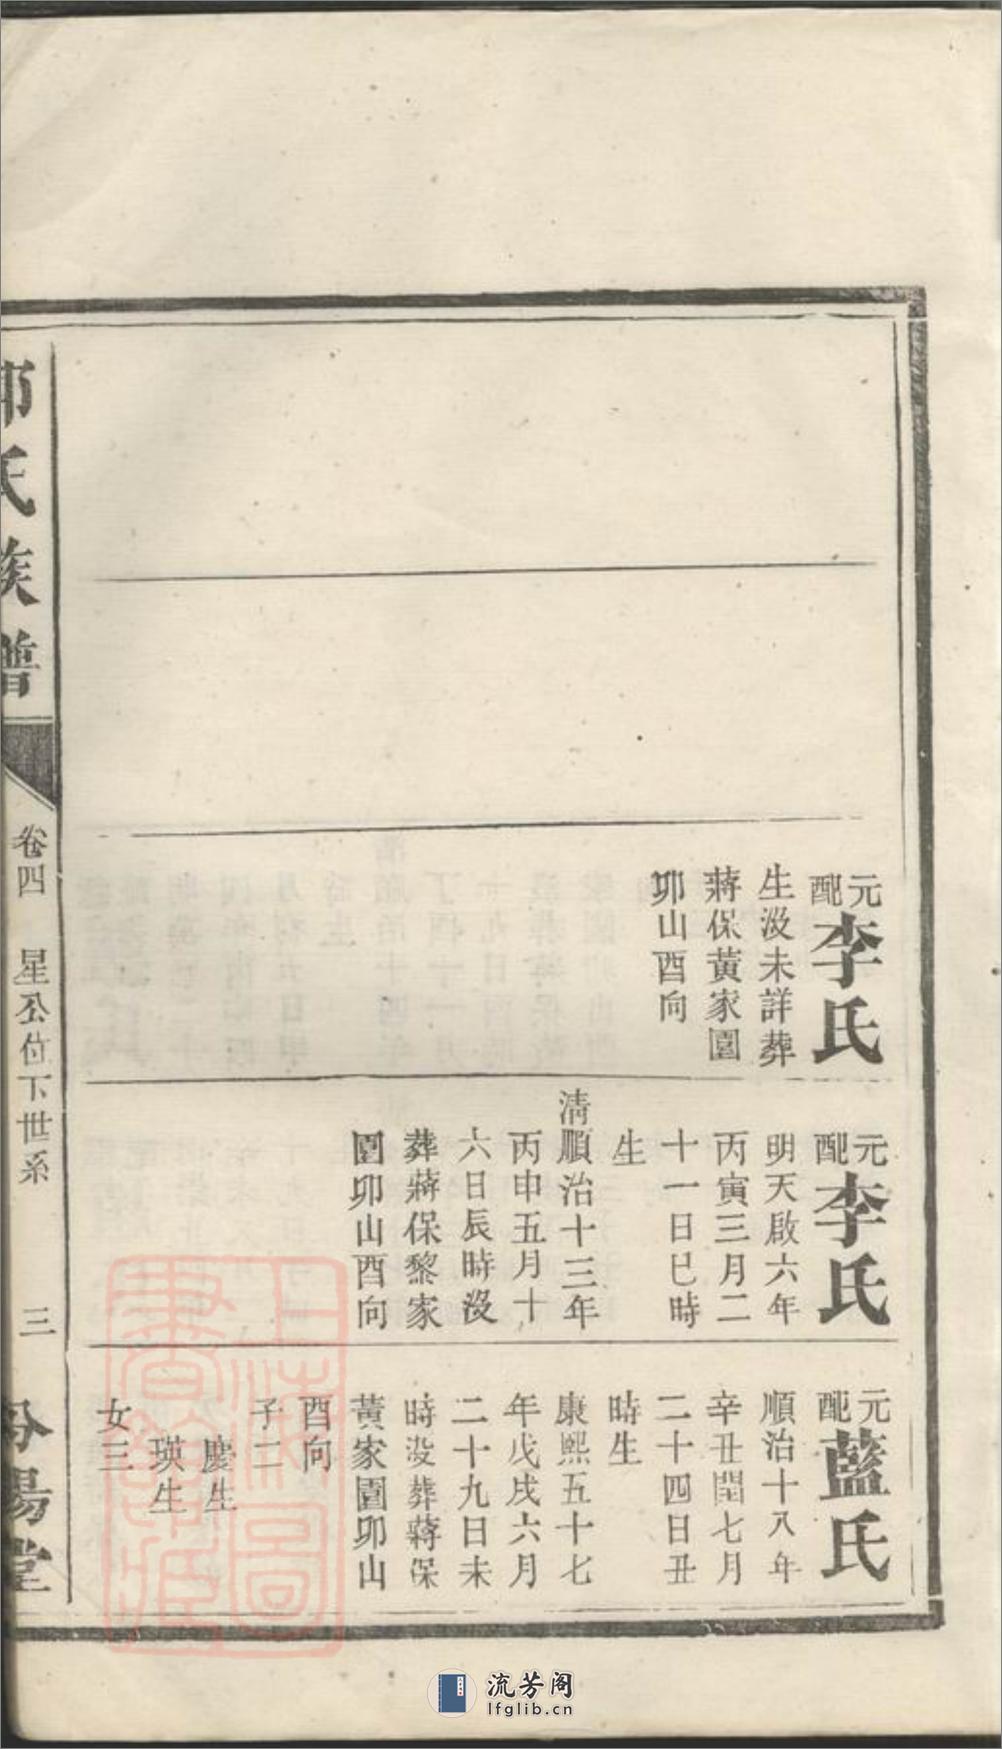 元配李氏
生沒未詳葬
蔣保黃家園
卯山酉向
元配李氏
明天啟六年
丙寅三月二
十一日巳時
生
清順治十三年
丙申五月十
六日辰時沒
葬蔣保黎家
園卯山酉向
元配藍氏
順治十八年
辛丑閏七月
二十四日丑
時生
康熙五十七
年戊戌六月
二十九日未
時沒葬蔣保
黃家園卯山
酉向
子二
慶生
瑛生
女三
氏族譜
卷四
星公位下世系
三
陽堂
上海圖書館藏
流芳阁
lfglib.cn